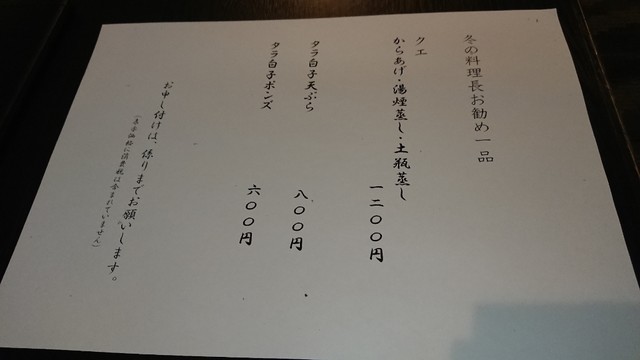 冬の料理長お勧め一品
クエ
からあげ・湯煙蒸し・土瓶蒸し
一二〇〇円
タラ白子天ぷら
八〇〇円
タラ白子ポンズ
六〇〇円
お申し付けは、係りまでお願いします。
(表示価格に消費税は含まれていません)